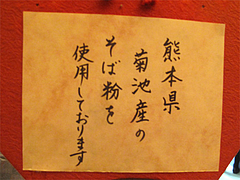 熊本県
菊池産の
そば粉を
使用しております